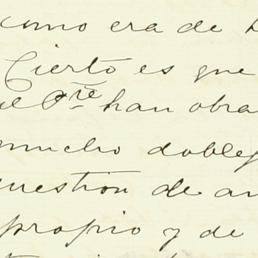 como era de
Cierto es que
el Pte. han obra
mucho doble
cuestion de am
propio y de